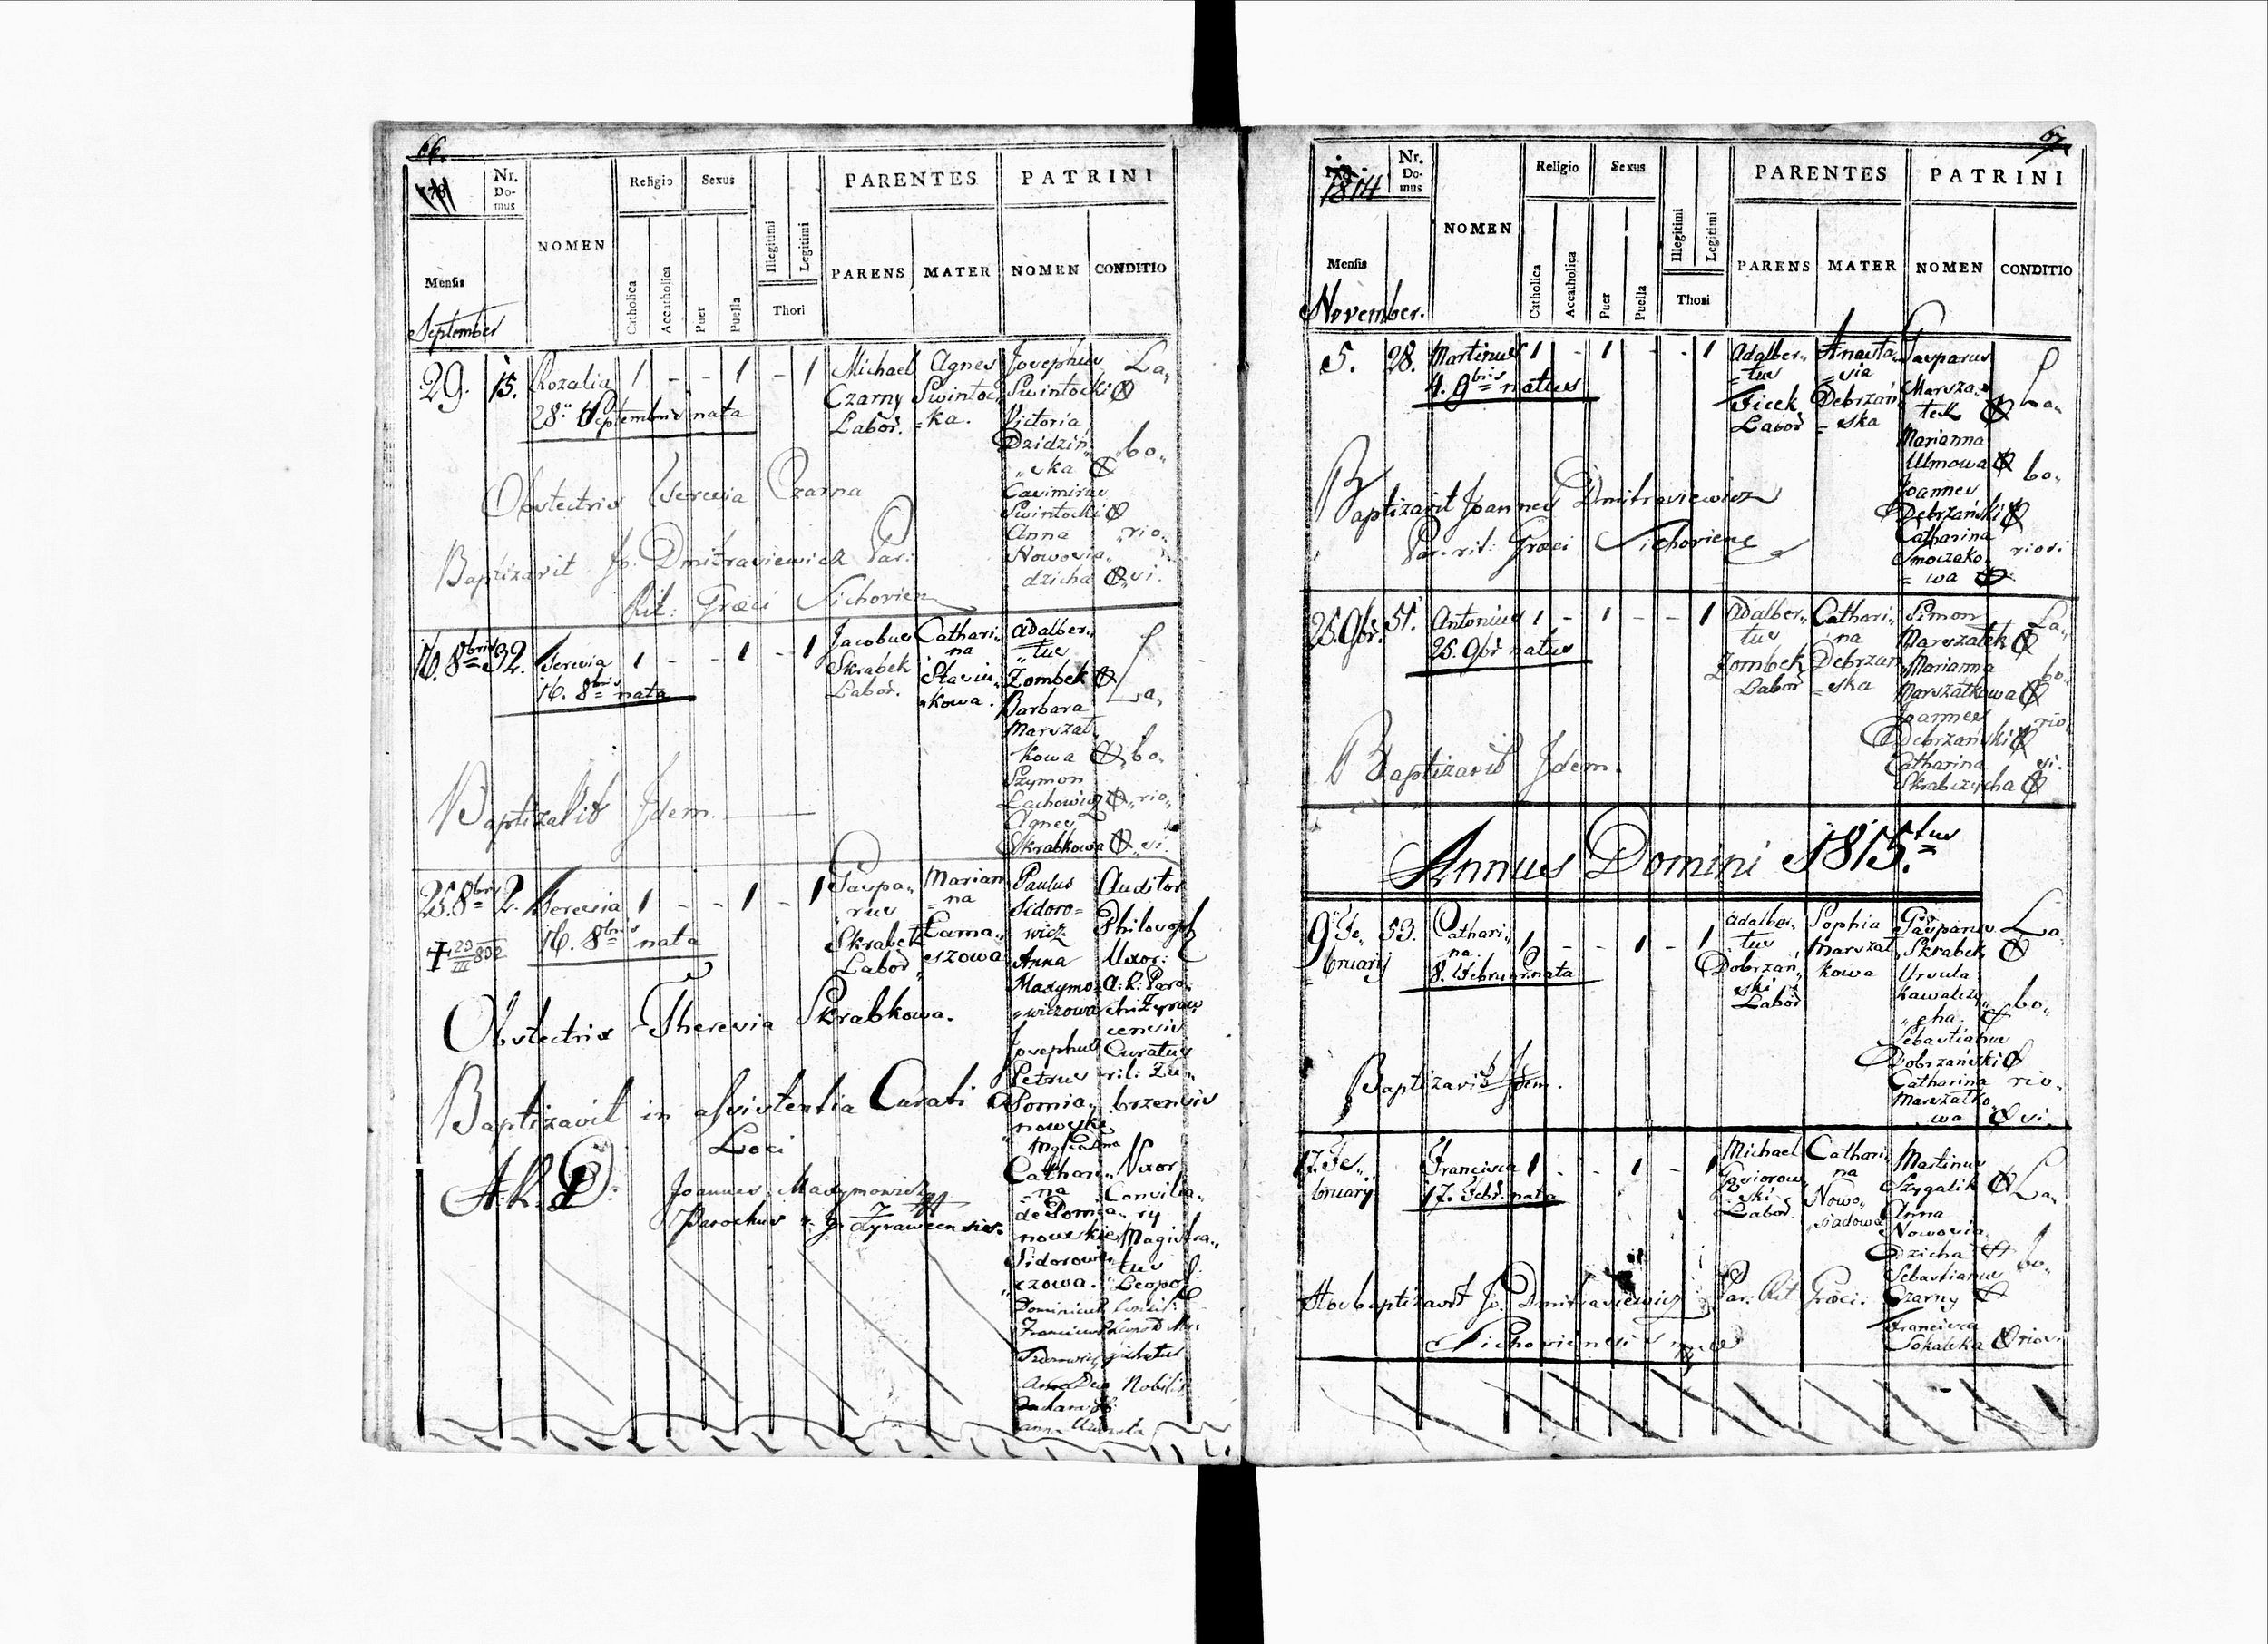 66.
Nr. Do- mus
NOMEN
Religio
Sexus
Catholica
Accatholica
Puer
Puella
Illegitimi
Legitimi
Thori
PARENTES
PARENS
MATER
PATRINI
NOMEN
CONDITIO
Mensis
September
29.
15.
Rozalia
28. Septembris nata
1 - - 1 - 1
Michael
Czarny
Labor.
Agnes
Swintoc-
=ka.
Josephus
Swintocki
Victoria
Dzidziń-
ska
Casimirus
Swintocki
Anna
Nowosia-
dzicha
La-
bo-
rio-
si.
Obstectrix Teresia Czarna
Baptizavit Jo: Dmitraviewicz Par:
Rit: Græci Sichovien
16. 8bris
32.
Teresia
16. 8bris nata
1 - - 1 - 1
Jacobus
Skrabek
Labor.
Cathari-
na
Stasiu-
kowa.
Adalber-
tus
Zombek
Barbara
Marszał-
kowa
Szymon
Lachowicz
Agnes
Skrabkowa
La-
bo-
rio-
si.
Baptizavit Idem.
25. 8bris
2.
Teresia
16. 8bris nata
1 - - 1 - 1
Gaspa-
rus
Skrabek
Labor
Marian
=na
Łama-
szowa
Paulus
Sidoro=
wicz
Anna
Maxymo-
wiczowa
Josephus
Petrus
Pomia-
nowski
Cathari-
=na
de Pomia-
nowskie
Sidorowi-
czowa.
Auditor
Philosoph
Uxor:
Curatus
brzensis
Uxor
Consilia-
ry
Magistra-
tus
Leopol
Nobilis
Obstectrix Theresia Skrabkowa.
Baptizavit in assistentia Curati
Loci
Joannes Maxymowicz
Parochus r. g. Zyrawcensis.
67.
1814
Nr. Do- mus
NOMEN
Religio
Sexus
Catholica
Accatholica
Puer
Puella
Illegitimi
Legitimi
Thori
PARENTES
PARENS
MATER
PATRINI
NOMEN
CONDITIO
Mensis
November.
5.
28.
Martinus
4. 9bris natus
1 - 1 - - 1
Adalber-
=tus
Ficek
Labor
Anasta-
=sia
Debrzań
=ska
Gasparus
Marsza-
tek
Marianna
Ulmowa
Joannes
Debrzański
Catharina
Smoczako-
=wa
La-
bo-
riosi
Baptizavit Joannes Dmitraviewicz
Par. rit: Græci Sichoviens
25. 9br.
51.
Antonius
25. 9br natus
1 - 1 - - 1
Adalber-
tus
Zombek
Labor
Cathari-
na
Debrzań
=ska
Simon
Marszatek
Marianna
Marszatkowa
Joannes
Debrzański
Catharina
Skrabczycha
La-
bo-
rio
si.
Baptizavit Idem.
Annus Domini 1815.tus
9. Fe-
bruarij
53.
Cathari-
na.
8. Februar nata
1 - - 1 - 1
Adalber-
tus
Dobrzań
ski
Labor
Sophia
Marszał
kowa
Gasparus
Skrabek
Ursula
Kawalczy-
cha.
Sebastianus
Dobrzański
Catharina
Marszatko
wa
La-
bo-
rio-
si.
Baptizavit Idem.
17. Fe-
bruarij
Francisca
17. Febr. nata
1 - - 1 - 1
Michael
Gasiorow
ski
Labor.
Cathari-
na
Nowo-
siadowa
Martinus
Szygalik
Anna
Nowosia-
Dzicha
Sebastianus
Czarny
Francisca
Sokalska
La-
bo-
riosi
Hos baptizavit Jo. Dmitraviewicz Par: Rit Græci:
Sichoviensis